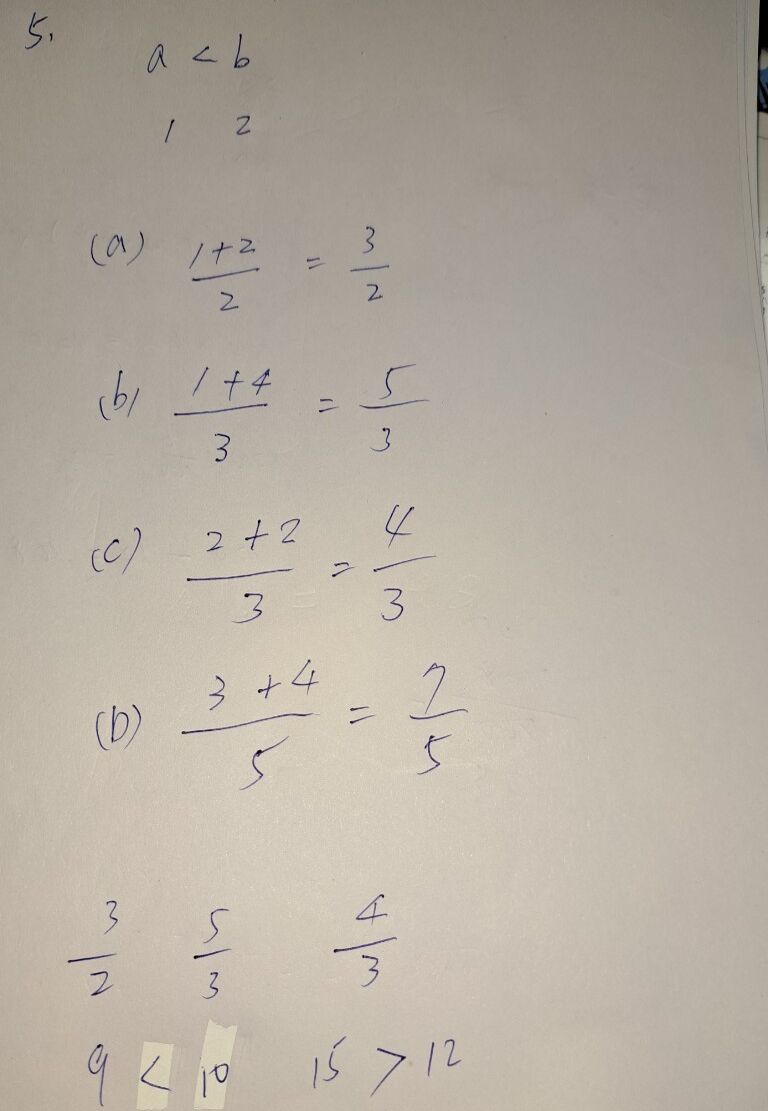 5.
a < b
1 2
(a) 1+2/2 = 3/2
(b) 1+4/3 = 5/3
(c) 2+2/3 = 4/3
(D) 3+4/5 = 7/5
3/2 5/3 4/3
9 < 10 15 > 12